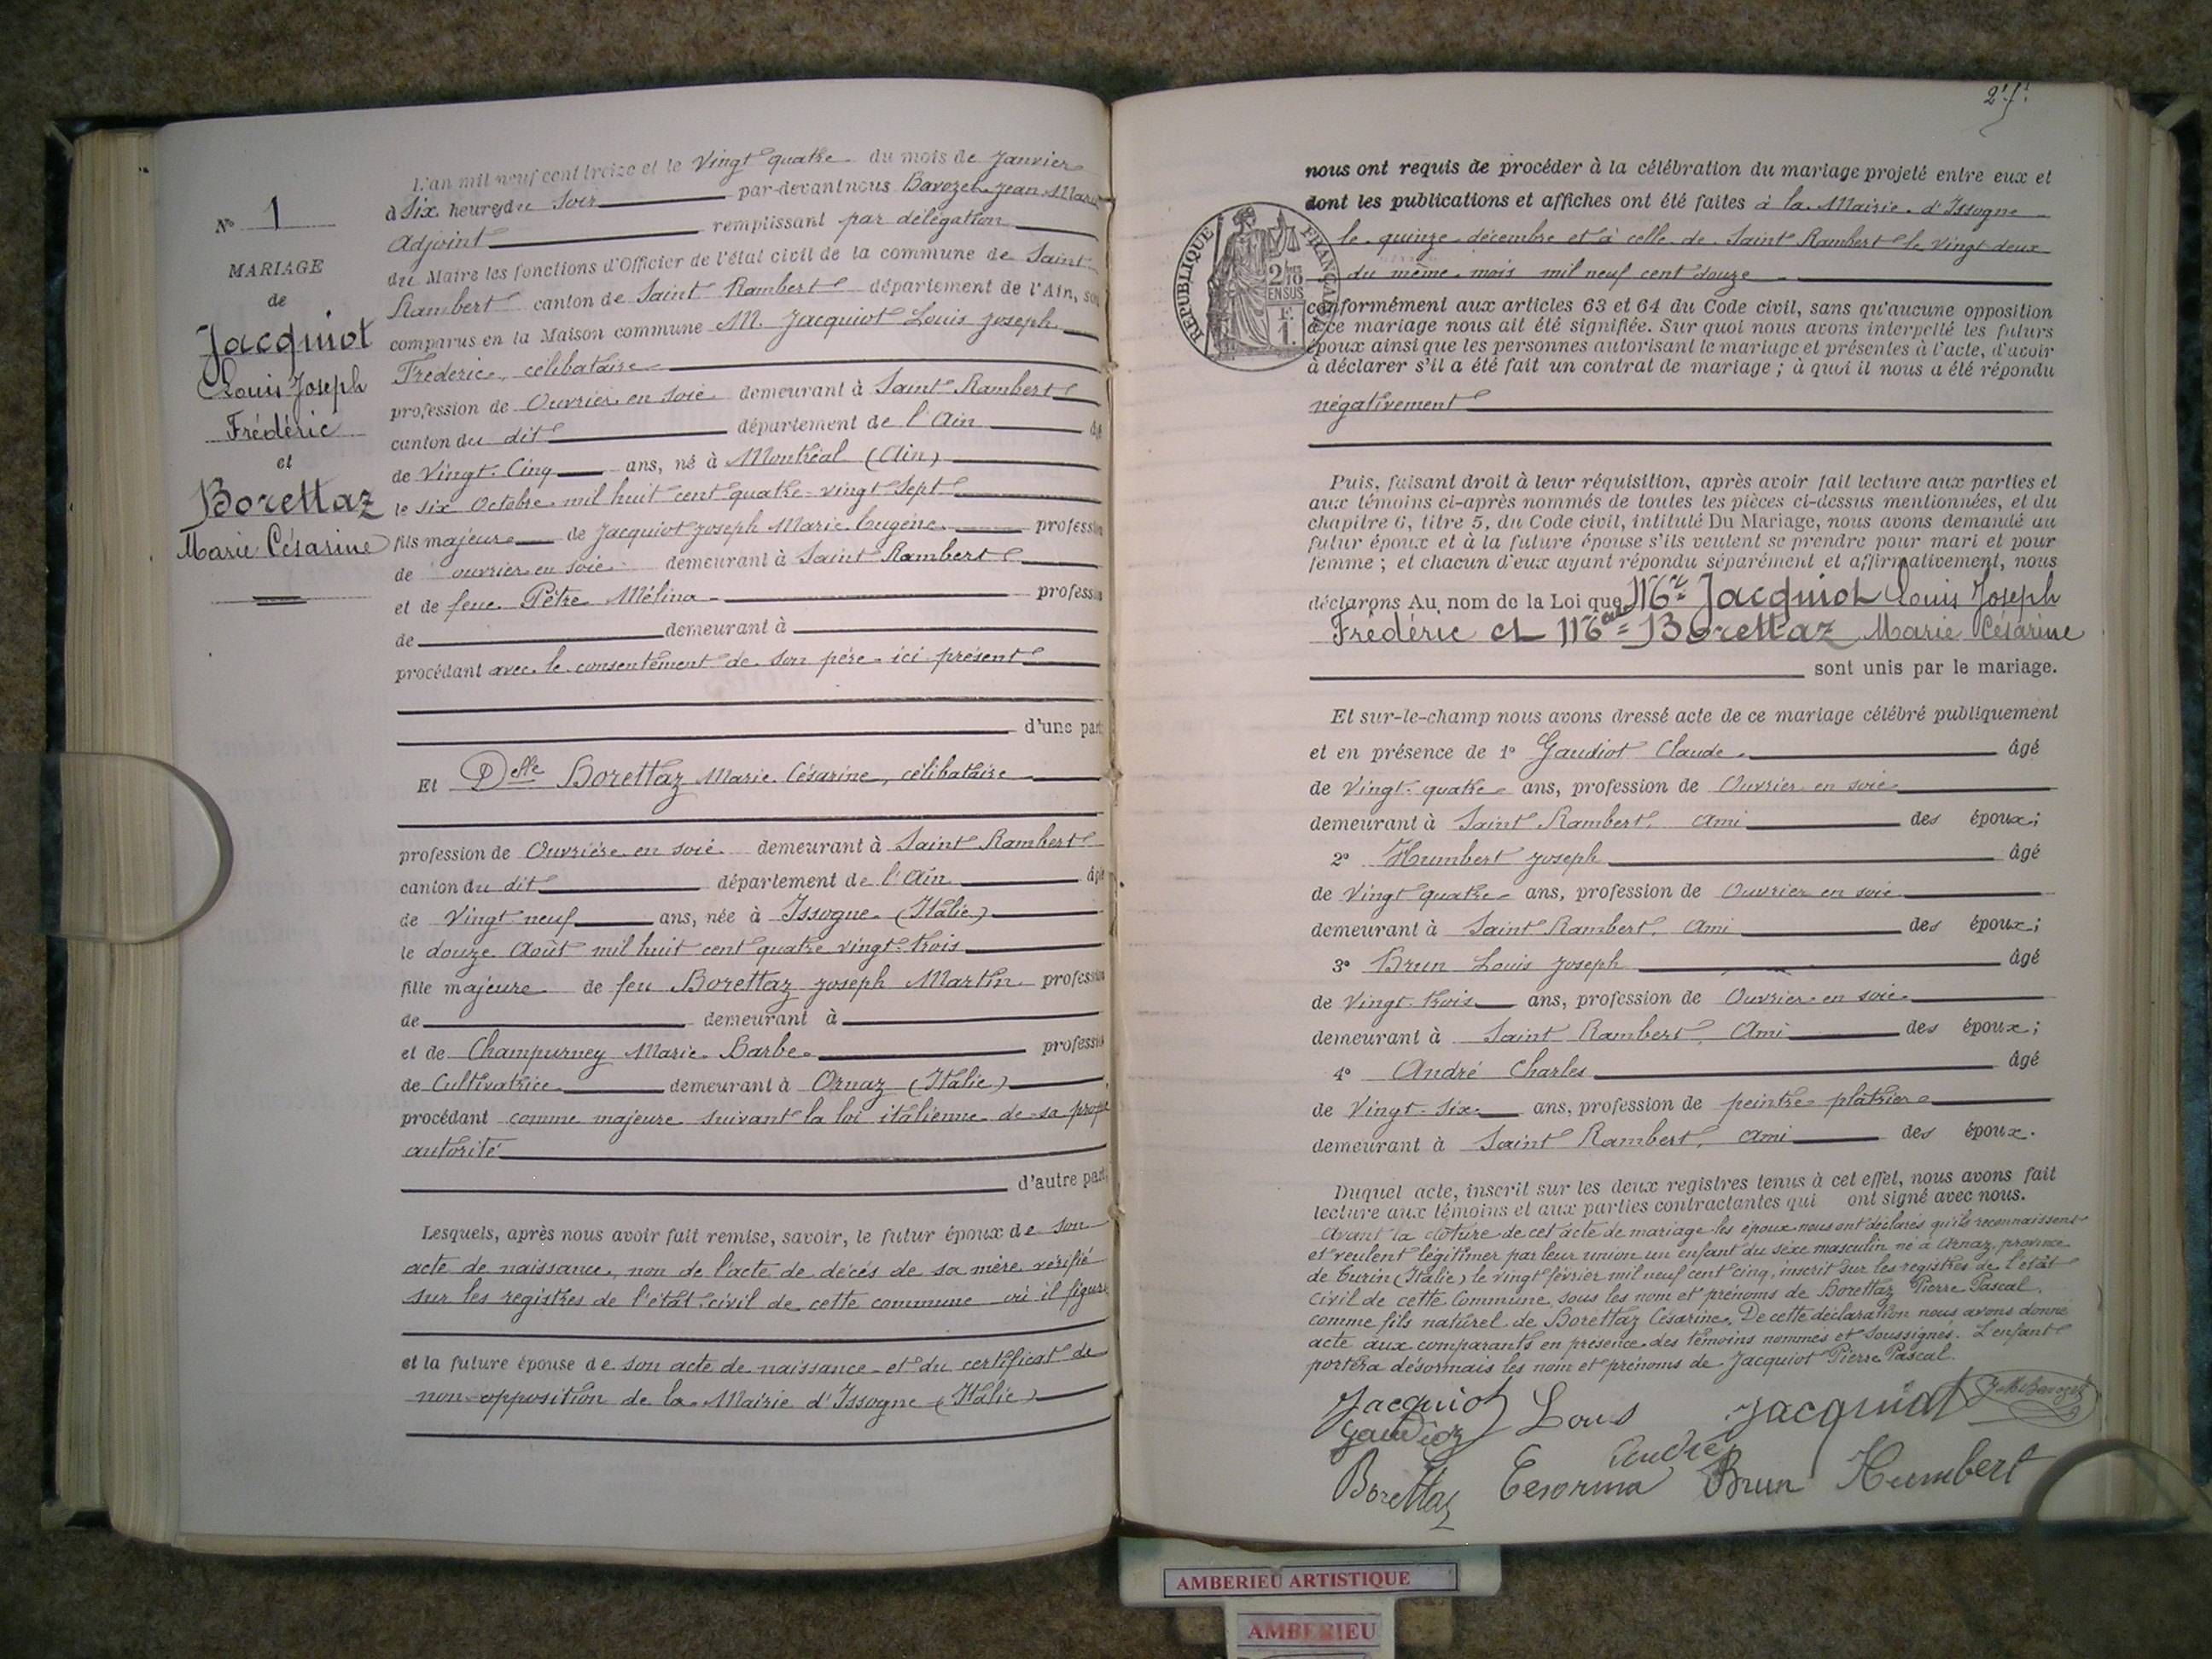 L'an mil neuf cent treize et le Vingt quatre du mois de Janvier
à Six heures du Soir par-devant nous Barozet Jean Marie
Adjoint remplissant par délégation
du Maire les fonctions d'Officier de l'état civil de la commune de Saint
Rambert canton de Saint Rambert département de l'Ain, sont
comparus en la Maison commune M. Jacquiot Louis Joseph
Frédéric, célibataire
profession de Ouvrier en soie demeurant à Saint Rambert
canton du dit département de l'Ain âgé
de Vingt-Cinq ans, né à Montréal (Ain)
le six Octobre mil huit cent quatre-vingt Sept
fils majeur de Jacquiot Joseph Marie Eugène profession
de ouvrier en soie demeurant à Saint Rambert
et de feue Pètre Mélina profession
de demeurant à
procédant avec le consentement de son père ici présent
d'une part
Et Delle Borettaz Marie Césarine, célibataire
profession de Ouvrière en soie demeurant à Saint Rambert
canton du dit département de l'Ain âgée
de Vingt neuf ans, née à Issogne (Italie)
le douze Août mil huit cent quatre vingt-trois
fille majeure de feu Borettaz Joseph Martin profession
de demeurant à
et de Champurney Marie Barbe profession
de Cultivatrice demeurant à Arnaz (Italie)
procédant comme majeure suivant la loi italienne de sa propre
autorité
d'autre part
Lesquels, après nous avoir fait remise, savoir, le futur époux de son
acte de naissance, non de l'acte de décès de sa mère vérifié
sur les registres de l'état civil de cette commune où il figure
et la future épouse de son acte de naissance et du certificat de
non-opposition de la Mairie d'Issogne (Italie)
N° 1
MARIAGE
de
Jacquiot
Louis Joseph
Frédéric
et
Borettaz
Marie Césarine
nous ont requis de procéder à la célébration du mariage projeté entre eux et
dont les publications et affiches ont été faites à la Mairie d'Issogne
le quinze décembre et à celle de Saint Rambert le vingt deux
du même mois mil neuf cent douze
conformément aux articles 63 et 64 du Code civil, sans qu'aucune opposition
à ce mariage nous ait été signifiée. Sur quoi nous avons interpellé les futurs
époux ainsi que les personnes autorisant le mariage et présentes à l'acte, d'avoir
à déclarer s'il a été fait un contrat de mariage ; à quoi il nous a été répondu
négativement
RÉPUBLIQUE FRANÇAISE
2/10
EN SUS
F.
1.
Puis, faisant droit à leur réquisition, après avoir fait lecture aux parties et
aux témoins ci-après nommés de toutes les pièces ci-dessus mentionnées, et du
chapitre 6, titre 5, du Code civil, intitulé Du Mariage, nous avons demandé au
futur époux et à la future épouse s'ils veulent se prendre pour mari et pour
femme ; et chacun d'eux ayant répondu séparément et affirmativement, nous
déclarons Au nom de la Loi que Mr Jacquiot Louis Joseph
Frédéric et Melle Borettaz Marie Césarine
sont unis par le mariage.
Et sur-le-champ nous avons dressé acte de ce mariage célébré publiquement
et en présence de 1° Gaudiot Claude âgé
de Vingt-quatre ans, profession de Ouvrier en soie
demeurant à Saint Rambert, Ami des époux;
2° Humbert Joseph âgé
de Vingt quatre ans, profession de Ouvrier en soie
demeurant à Saint Rambert, Ami des époux;
3° Brun Louis Joseph âgé
de Vingt-trois ans, profession de Ouvrier en soie
demeurant à Saint Rambert, Ami des époux;
4° André Charles âgé
de Vingt-Six ans, profession de peintre plâtrier
demeurant à Saint Rambert, Ami des époux.
Duquel acte, inscrit sur les deux registres tenus à cet effet, nous avons fait
lecture aux témoins et aux parties contractantes qui ont signé avec nous.
Avant la clôture de cet acte de mariage les époux nous ont déclarés qu'ils reconnaissent
et veulent légitimer par leur union un enfant du sexe masculin né à Arnaz, province
de Turin (Italie) le vingt février mil neuf cent cinq, inscrit sur les registres de l'état
civil de cette Commune, sous les nom et prénoms de Borettaz Pierre Pascal.
comme fils naturel de Borettaz Césarine. De cette déclaration nous avons donné
acte aux comparants en présence des témoins nommés et soussignés. L'enfant
portera désormais les nom et prénoms de Jacquiot Pierre Pascal.
Jacquiot Louis Jacquiot
André
Borettaz Brun Humbert
AMBERIEU ARTISTIQUE
AMBERIEU